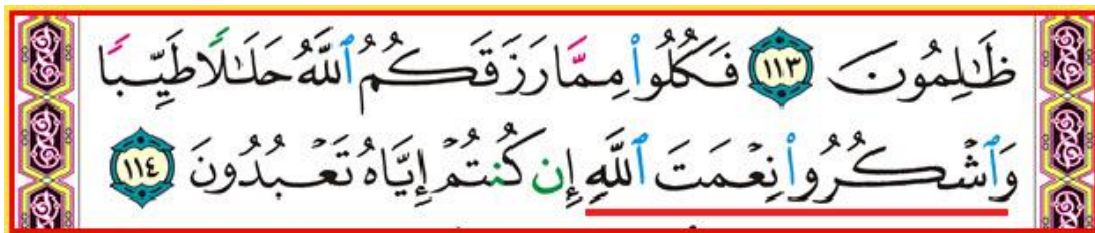 ظَٰلِمُونَ ١١٣ فَكُلُوا۟ مِمَّا رَزَقَكُمُ ٱللَّهُ حَلَٰلًا طَيِّبًا
وَٱشْكُرُوا۟ نِعْمَتَ ٱللَّهِ إِن كُنتُمْ إِيَّاهُ تَعْبُدُونَ ١١٤